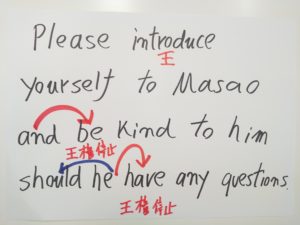 Please introduce
王
yourself to Masao
and be kind to him
王権停止
should he have any questions.
王権停止